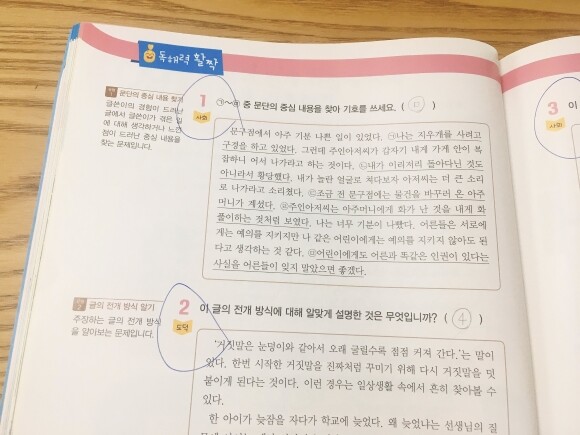 독해력 활짝
유형 1 문단의 중심 내용 찾기
글쓴이의 경험이 드러난
글에서 글쓴이가 겪은 일
에 대해 생각하거나 느낀
점이 드러난 중심 내용을
찾는 문제입니다.
1
사회
㉠~㉤ 중 문단의 중심 내용을 찾아 기호를 쓰세요. ( ㉤ )
문구점에서 아주 기분 나쁜 일이 있었다. ㉠나는 지우개를 사려고
구경을 하고 있었다. 그런데 주인아저씨가 갑자기 내게 가게 안이 복
잡하니 어서 나가라고 하는 것이다. ㉡내가 이리저리 돌아다닌 것도
아니라서 황당했다. 내가 놀란 얼굴로 쳐다보자 아저씨는 더 큰 소리
로 나가라고 소리쳤다. ㉢조금 전 문구점에는 물건을 바꾸러 온 아주
머니가 계셨다. ㉣주인아저씨는 아주머니에게 화가 난 것을 내게 화
풀이하는 것처럼 보였다. 나는 너무 기분이 나빴다. 어른들은 서로에
게는 예의를 지키지만 나 같은 어린이에게는 예의를 지키지 않아도 된
다고 생각하는 것 같다. ㉤어린이에게도 어른과 똑같은 인권이 있다는
사실을 어른들이 잊지 말았으면 좋겠다.
유형 2 글의 전개 방식 알기
주장하는 글의 전개 방식
을 알아보는 문제입니다.
2
도덕
이 글의 전개 방식에 대해 알맞게 설명한 것은 무엇입니까? ( ④ )
'거짓말은 눈덩이와 같아서 오래 굴릴수록 점점 커져 간다.'는 말이
있다. 한번 시작한 거짓말을 진짜처럼 꾸미기 위해 다시 거짓말을 덧
붙이게 된다는 것이다. 이런 경우는 일상생활 속에서 흔히 찾아볼 수
있다.
한 아이가 늦잠을 자다가 학교에 늦었다. 왜 늦었냐는 선생님의 질
3
사회